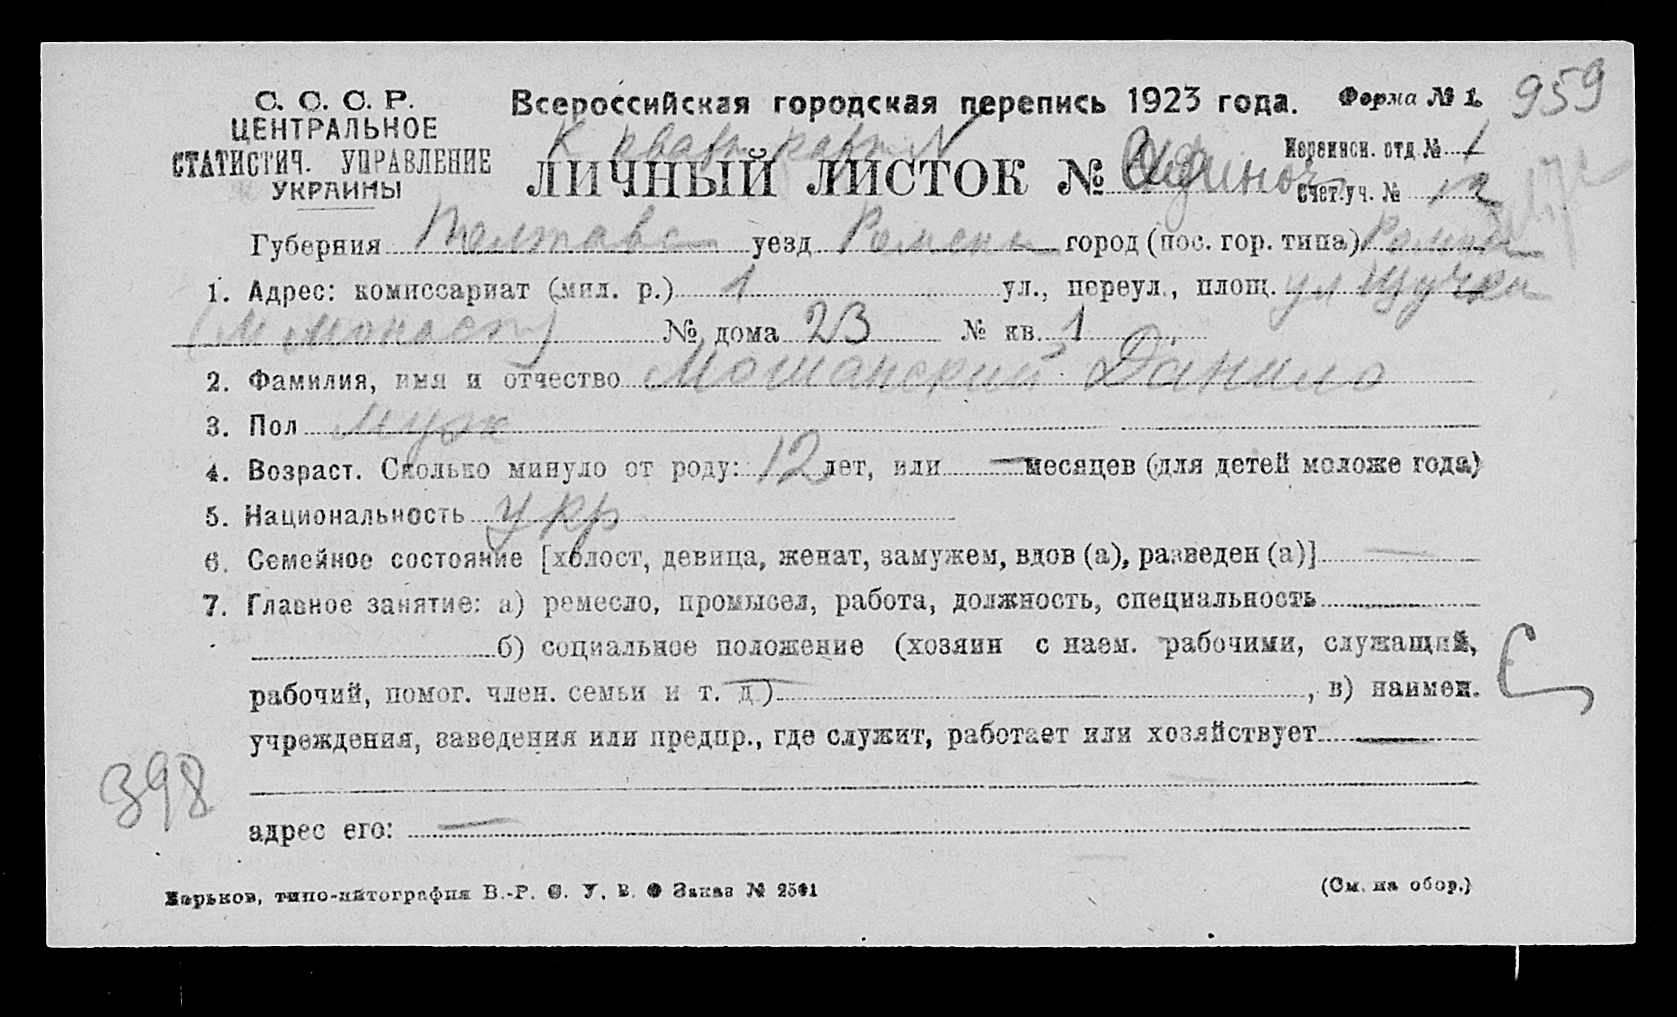 С. С. С. Р.
ЦЕНТРАЛЬНОЕ
СТАТИСТИЧ. УПРАВЛЕНИЕ
УКРАИНЫ
Всероссийская городская перепись 1923 года. Форма № 1.
959
К
ЛИЧНЫЙ ЛИСТОК № Одиноч
Переписн. отд № 1
Счет. уч. № 12
Губерния Полтавс уезд Роменск город (пос. гор. типа) Ромны
1. Адрес: комиссариат (мил. р.) 1 ул., переул., площ. ул
(М Монаст) № дома 23 № кв. 1
2. Фамилия, имя и отчество Мошанский Данило
3. Пол муж
4. Возраст. Сколько минуло от роду: 12 лет, или — месяцев (для детей моложе года)
5. Национальность укр
6. Семейное состояние [холост, девица, женат, замужем, вдов (а), разведен (а)] —
7. Главное занятие: а) ремесло, промысел, работа, должность, специальность
б) социальное положение (хозяин с наем. рабочими, служащий,
рабочий, помог. член. семьи и т. д.) , в) наимен.
учреждения, заведения или предпр., где служит, работает или хозяйствует —
398
адрес его: —
Харьков, типо-литография В.-Р. С. У. В. О Заказ № 2541
(См. на обор.)